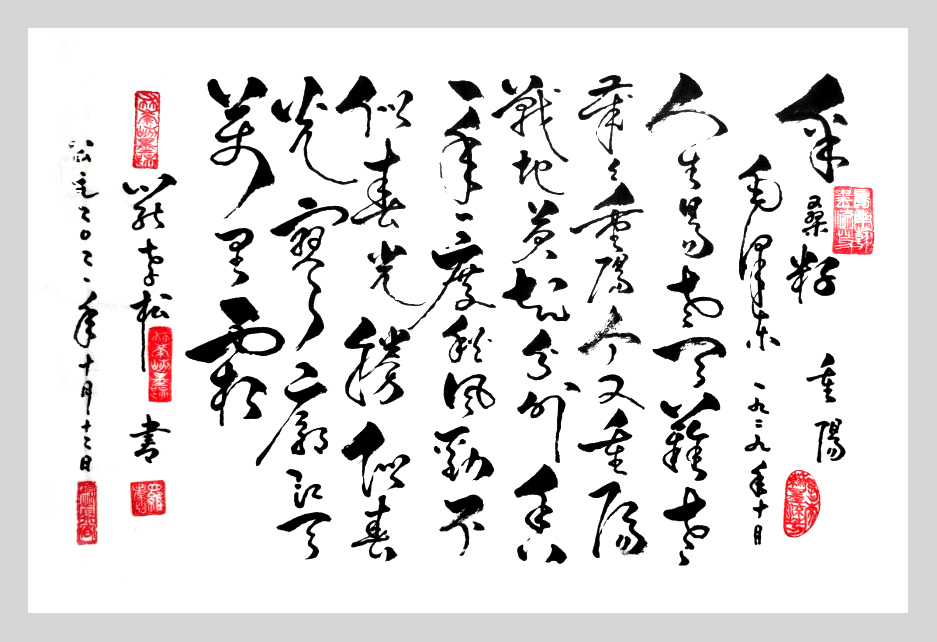 采桑籽 重陽
毛澤東 一九二九年十月
人生易老天難老
歲歲重陽今又重陽
戰地黃花分外香
一年一度秋風勁不
似春光勝似春
光寥廓江天
萬里霜
松 書
公元二〇二一年十月十二日